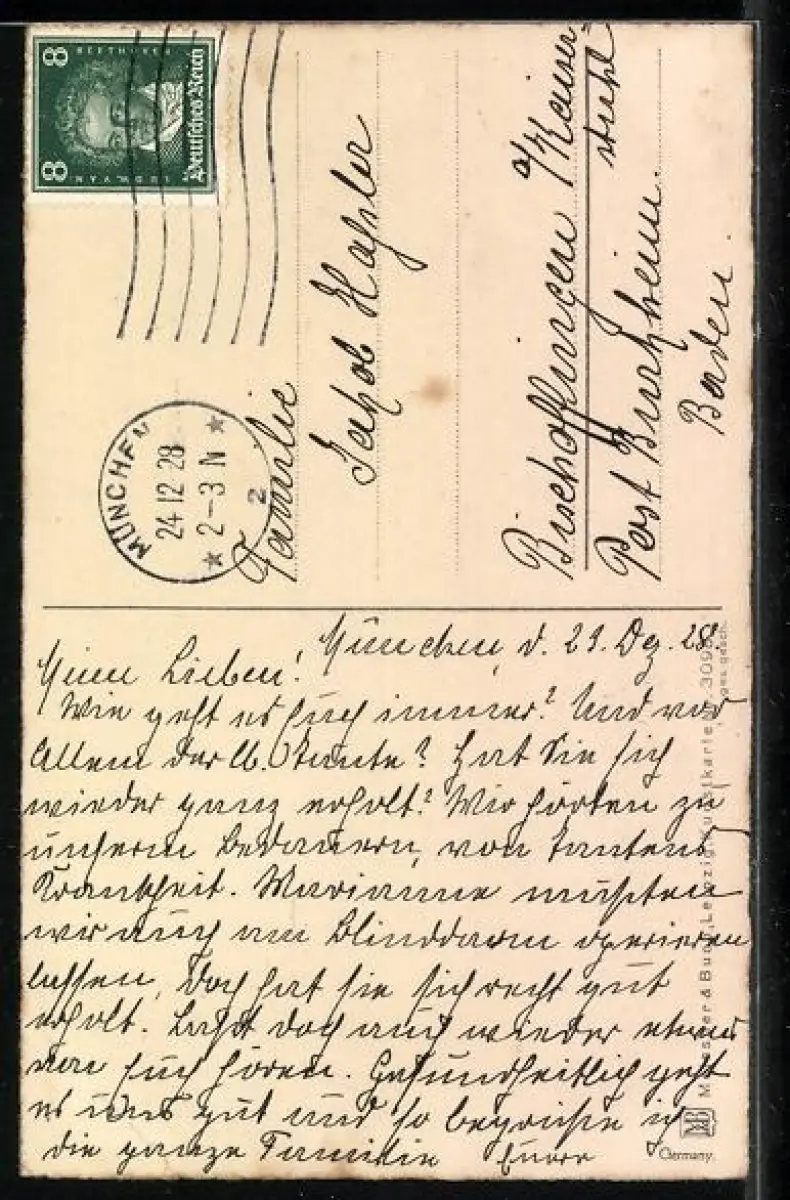 8 BEETHOVEN
Deutsches Reich
8 LUDW. VAN
MÜNCHEN
24.12.28
* 2-3 N *
2
Familie
Jakob Haßler
Bischoffingen a/Kaiser-
stuhl
Post Burkheim.
Baden.
München, d. 23. Dez. 28.
Meine Lieben!
Wie geht es Euch immer? Und vor
Allem der lb. Tante? Hat Sie sich
wieder ganz erholt? Wir hörten zu
unserm Bedauern, von Tantens
Krankheit. Marianne mußten
wir auch am Blinddarm operieren
lassen, doch hat sie sich recht gut
erholt. Laßt doch auch wieder etwas
von Euch hören. Gesundheitlich geht
es uns gut und so begrüße ich
die ganze Familie Eure
Meissner & Buch, Leipzig. Kunstkarte Nr. 309
ges. gesch.
M&B
Germany.